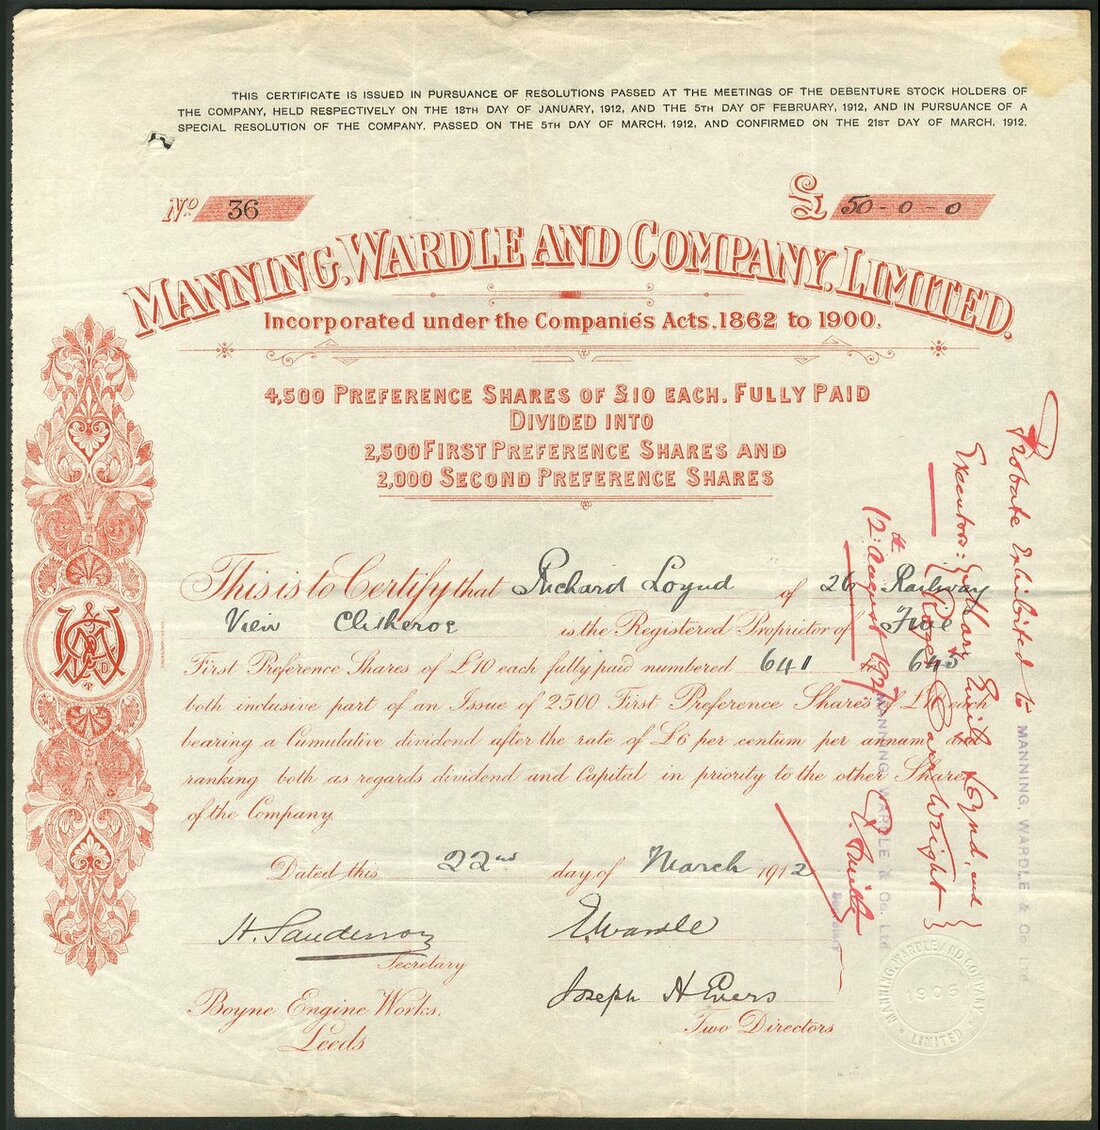 THIS CERTIFICATE IS ISSUED IN PURSUANCE OF RESOLUTIONS PASSED AT THE MEETINGS OF THE DEBENTURE STOCK HOLDERS OF
THE COMPANY, HELD RESPECTIVELY ON THE 18TH DAY OF JANUARY, 1912, AND THE 5TH DAY OF FEBRUARY, 1912, AND IN PURSUANCE OF A
SPECIAL RESOLUTION OF THE COMPANY, PASSED ON THE 5TH DAY OF MARCH, 1912, AND CONFIRMED ON THE 21ST DAY OF MARCH, 1912.
No. 36
£ 50 - 0 - 0
MANNING, WARDLE AND COMPANY, LIMITED.
Incorporated under the Companies Acts, 1862 to 1900.
4,500 PREFERENCE SHARES OF £10 EACH, FULLY PAID
DIVIDED INTO
2,500 FIRST PREFERENCE SHARES AND
2,000 SECOND PREFERENCE SHARES
This is to Certify that Richard Loynd of 26 Railway
View Clitheroe is the Registered Proprietor of Five
First Preference Shares of £10 each fully paid numbered 641 645
both inclusive part of an Issue of 2500 First Preference Shares of £10 each
bearing a Cumulative dividend after the rate of £6 per centum per annum and
ranking both as regards dividend and Capital in priority to the other Shares
of the Company.
Dated this 22nd day of March 1912
H. Sanderson
Secretary
E. Wardle
Joseph H Evers
Two Directors
Boyne Engine Works,
Leeds
Probate Exhibited to MANNING, WARDLE & Co. Ltd
Executors: { Mary Emily Loynd, and
{ Roger Carr Wright }
12th August 1921
MANNING, WARDLE & Co. Ltd
MANNING, WARDLE AND COMPANY
LIMITED